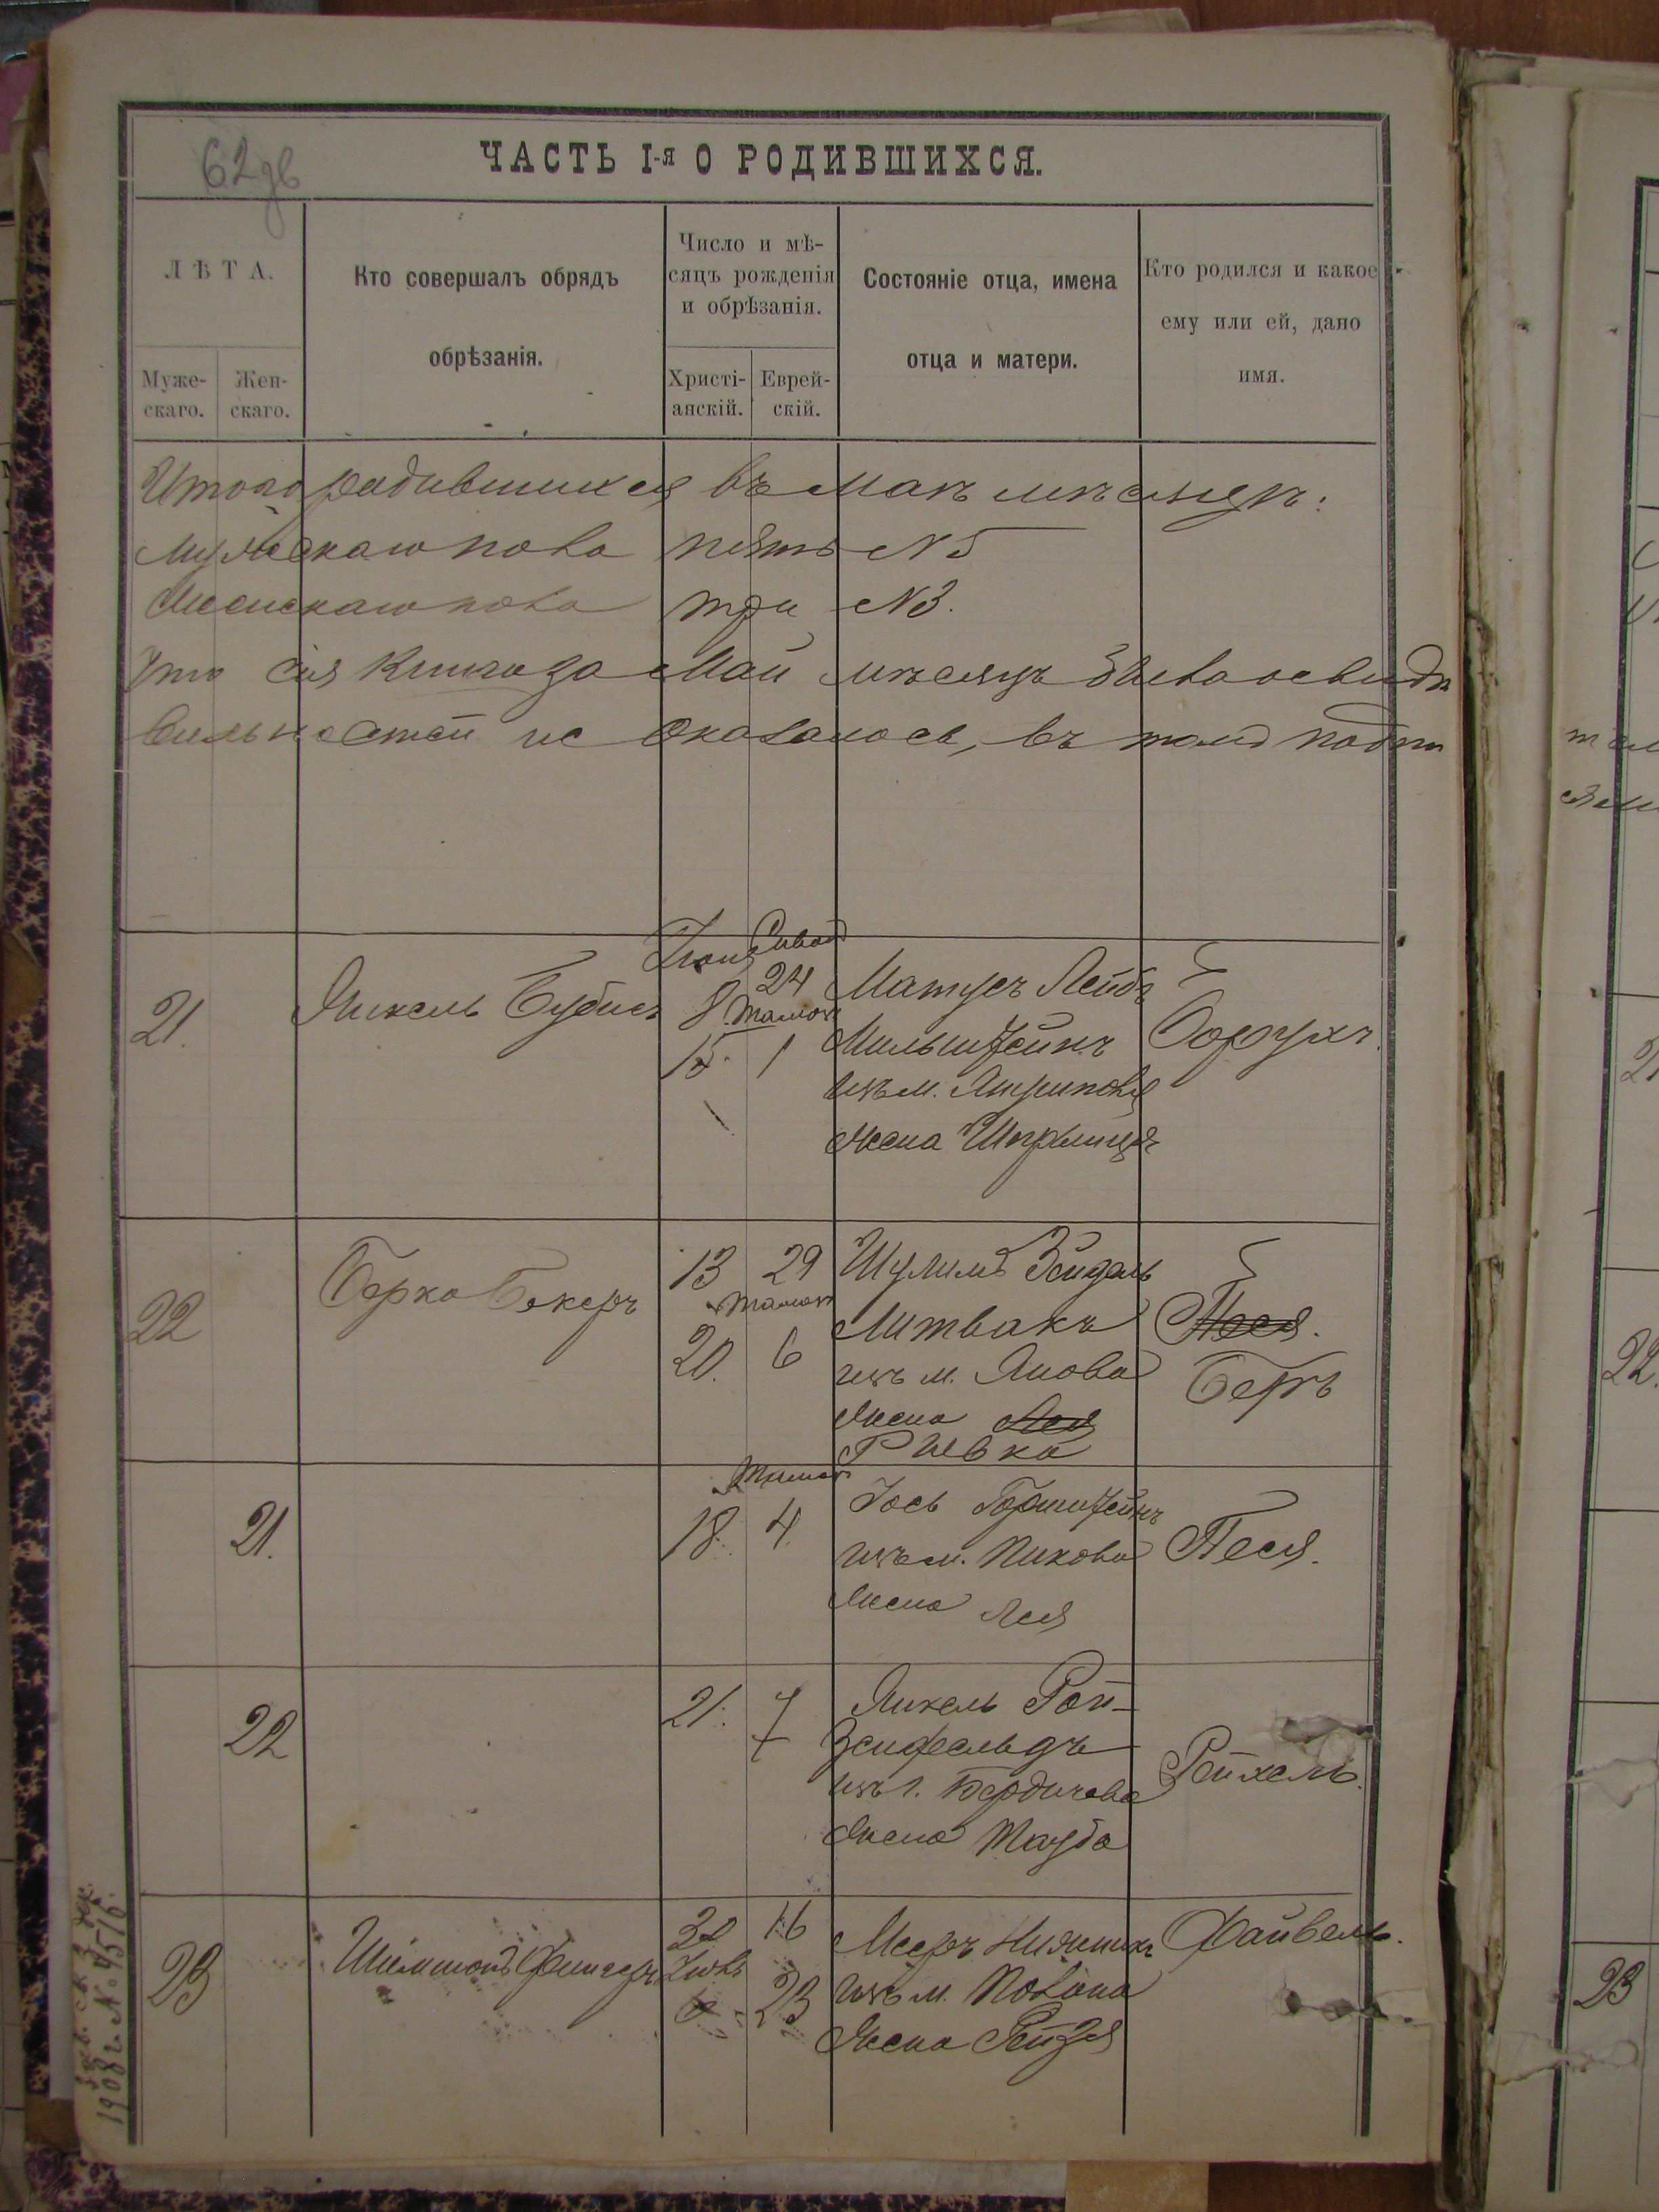 62 дв
ЧАСТЬ I-я О РОДИВШИХСЯ.
ЛѢТА.
Муже-
скаго.
Жен-
скаго.
Кто совершалъ обрядъ
обрѣзанія.
Число и мѣ-
сяцъ рожденія
и обрѣзанія.
Христі-
анскій.
Еврей-
скій.
Состояніе отца, имена
отца и матери.
Кто родился и какое
ему или ей, дано
имя.
Итого родившихся въ маѣ мѣсяцѣ:
Мужскаго пола пять №5
Женскаго пола три №3.
Что сія книга за Май мѣсяцъ была освидѣ
вильностей не оказалось, въ томъ подпи
21.
Янкель Бубис
Іюня
8
15.
Сивон
24
Тамоз
1
Матусъ Лейбъ
Мильштейнъ
изъ м.
жена Шпринця
Борухъ.
22
Берко Бекеръ
13
20.
29
Тамоз
6
Шулимъ Зейдель
Литвакъ
изъ м. Янова
жена Лея
Ривка
Песя.
Беръ
21.
18.
Тамоз
4.
Іось Горнштейнъ
изъ м. Пикова
жена Лея
Песя.
22
21.
7
Янкель Рой-
зенфельдъ
изъ г. Бердичева
жена Тауба
Рейхель.
23
Шимшонъ Фингеръ
30
Іюль
16
23
Мееръ
изъ м.
жена Рейзя
Файвель.
1908 г. № 4516.
21
22.
23